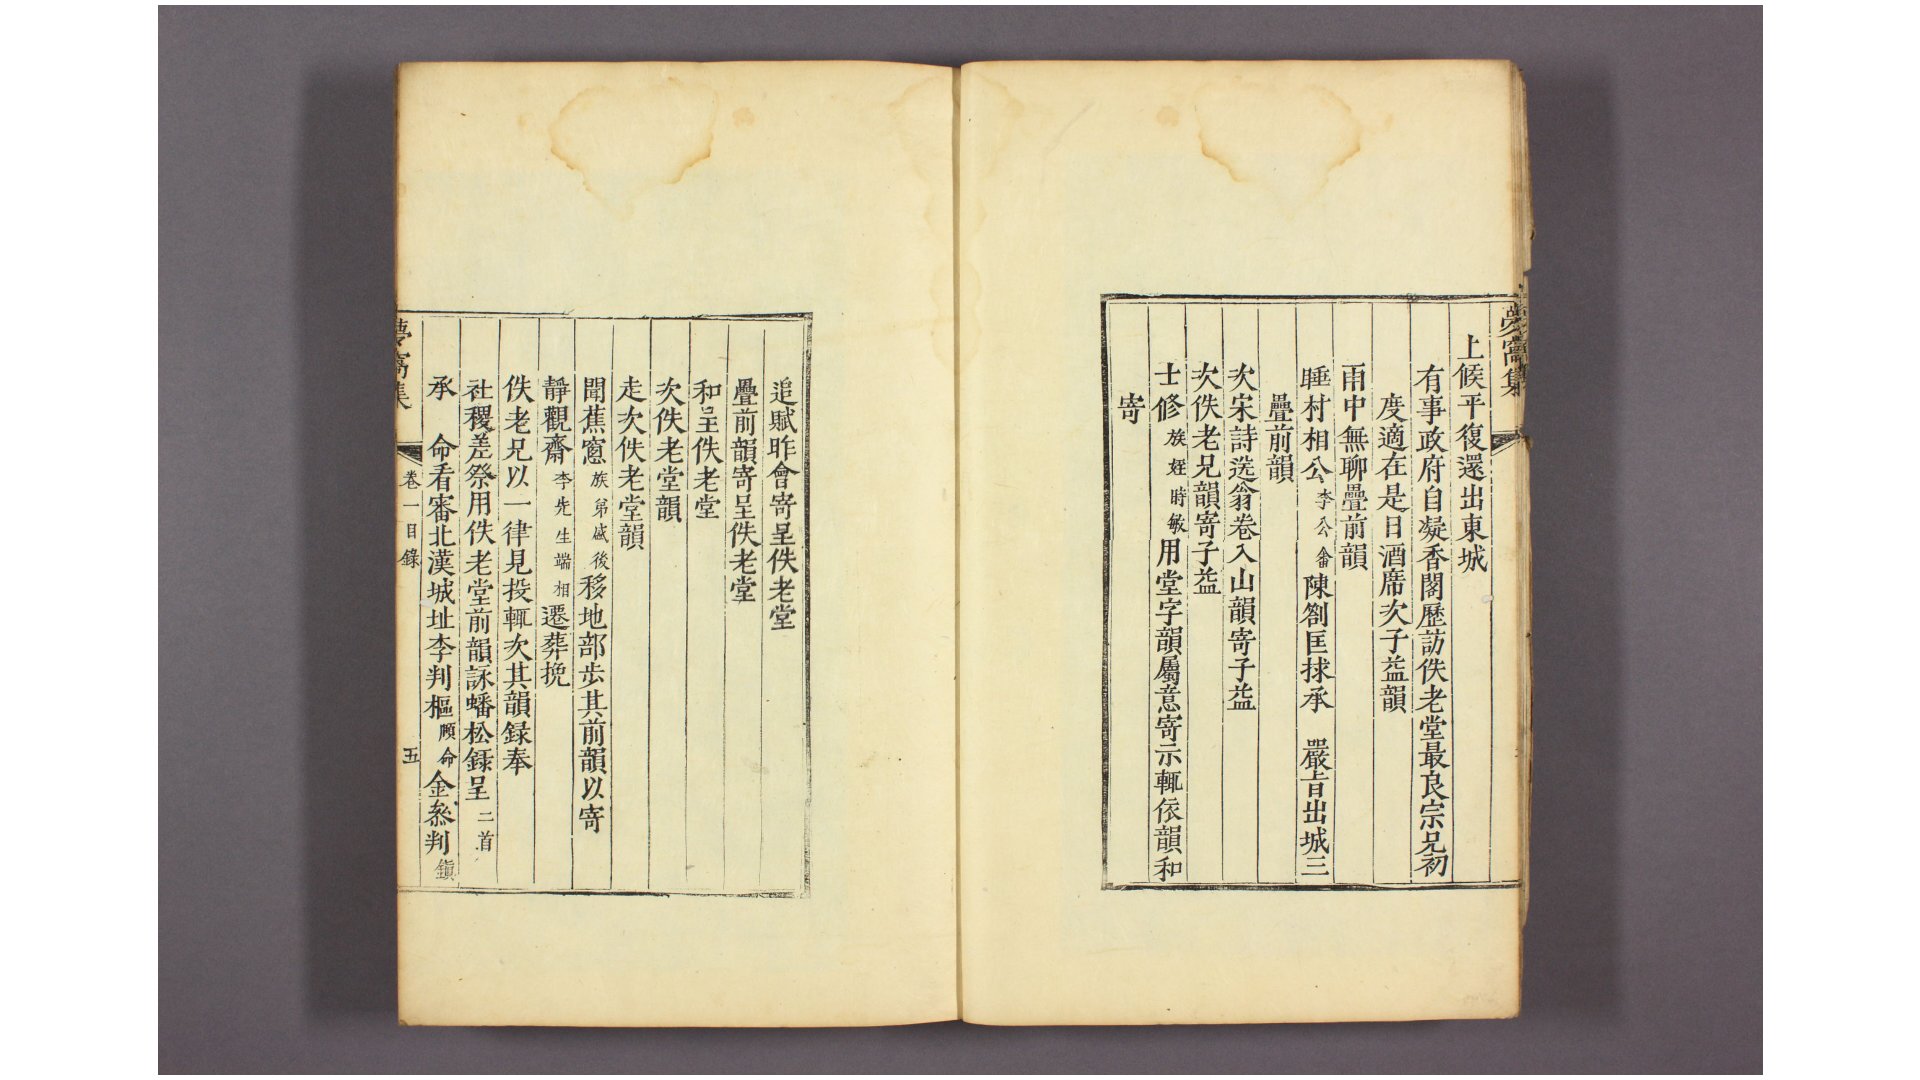 夢窩集
上候平復還出東城
有事政府自凝香閣歷訪佚老堂最良宗兄初
度適在是日酒席次子益韻
雨中無聊疊前韻
睡村相公李公畬陳劄匡捄承　嚴旨出城三
疊前韻
次宋詩选翁卷入山韻寄子益
次佚老兄韻寄子益
士修族姪時敏用堂字韻屬意寄示輒依韻和
寄
追賦昨會寄呈佚老堂
疊前韻寄呈佚老堂
和呈佚老堂
次佚老堂韻
走次佚老堂韻
聞蕉窓族弟盛後移地部步其前韻以寄
靜觀齋李先生端相遷葬挽
佚老兄以一律見投輒次其韻録奉
社稷差祭用佚老堂前韻詠蟠松錄呈二首
承　命看審北漢城址李判樞頤命金叅判鎭
夢窩集
卷一目錄
五